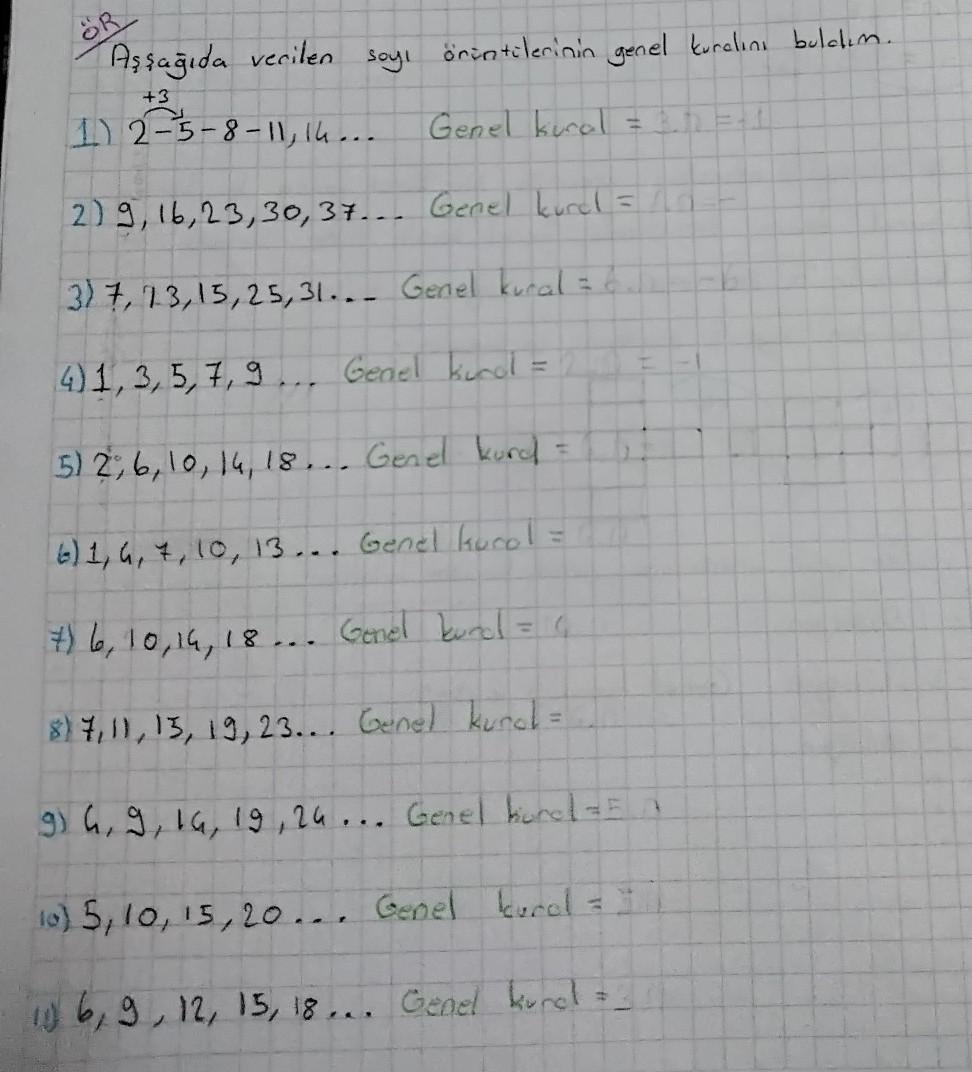 ÖR
Aşşağıda verilen sayı örüntülerinin genel kuralını bulalım.
+3
1) 2-5-8-11,14... Genel kural = 3.n=-1
2) 9,16,23,30,37... Genel kural =
3) 7,13,15,25,31... Genel kural =
4) 1,3,5,7,9... Genel kural = 2 = -1
5) 2,6,10,14,18... Genel kural =
6) 1,4,7,10,13... Genel kural =
7) 6,10,14,18... Genel kural =
8) 7,11,15,19,23... Genel kural =
9) 4,9,14,19,24... Genel kural = 5
10) 5,10,15,20... Genel kural =
11) 6,9,12,15,18... Genel kural =